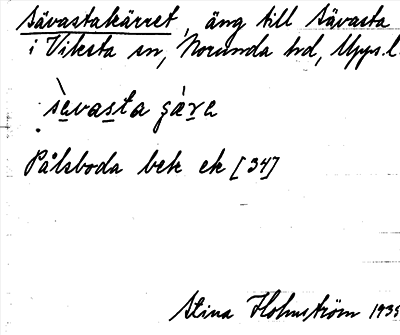 Sävastakärret, äng till Sävasta
i Viksta sn, Norunda hd, Upps. l.
sèvasta gàre
Pålsboda bek ek [34]
Stina Holmström 193